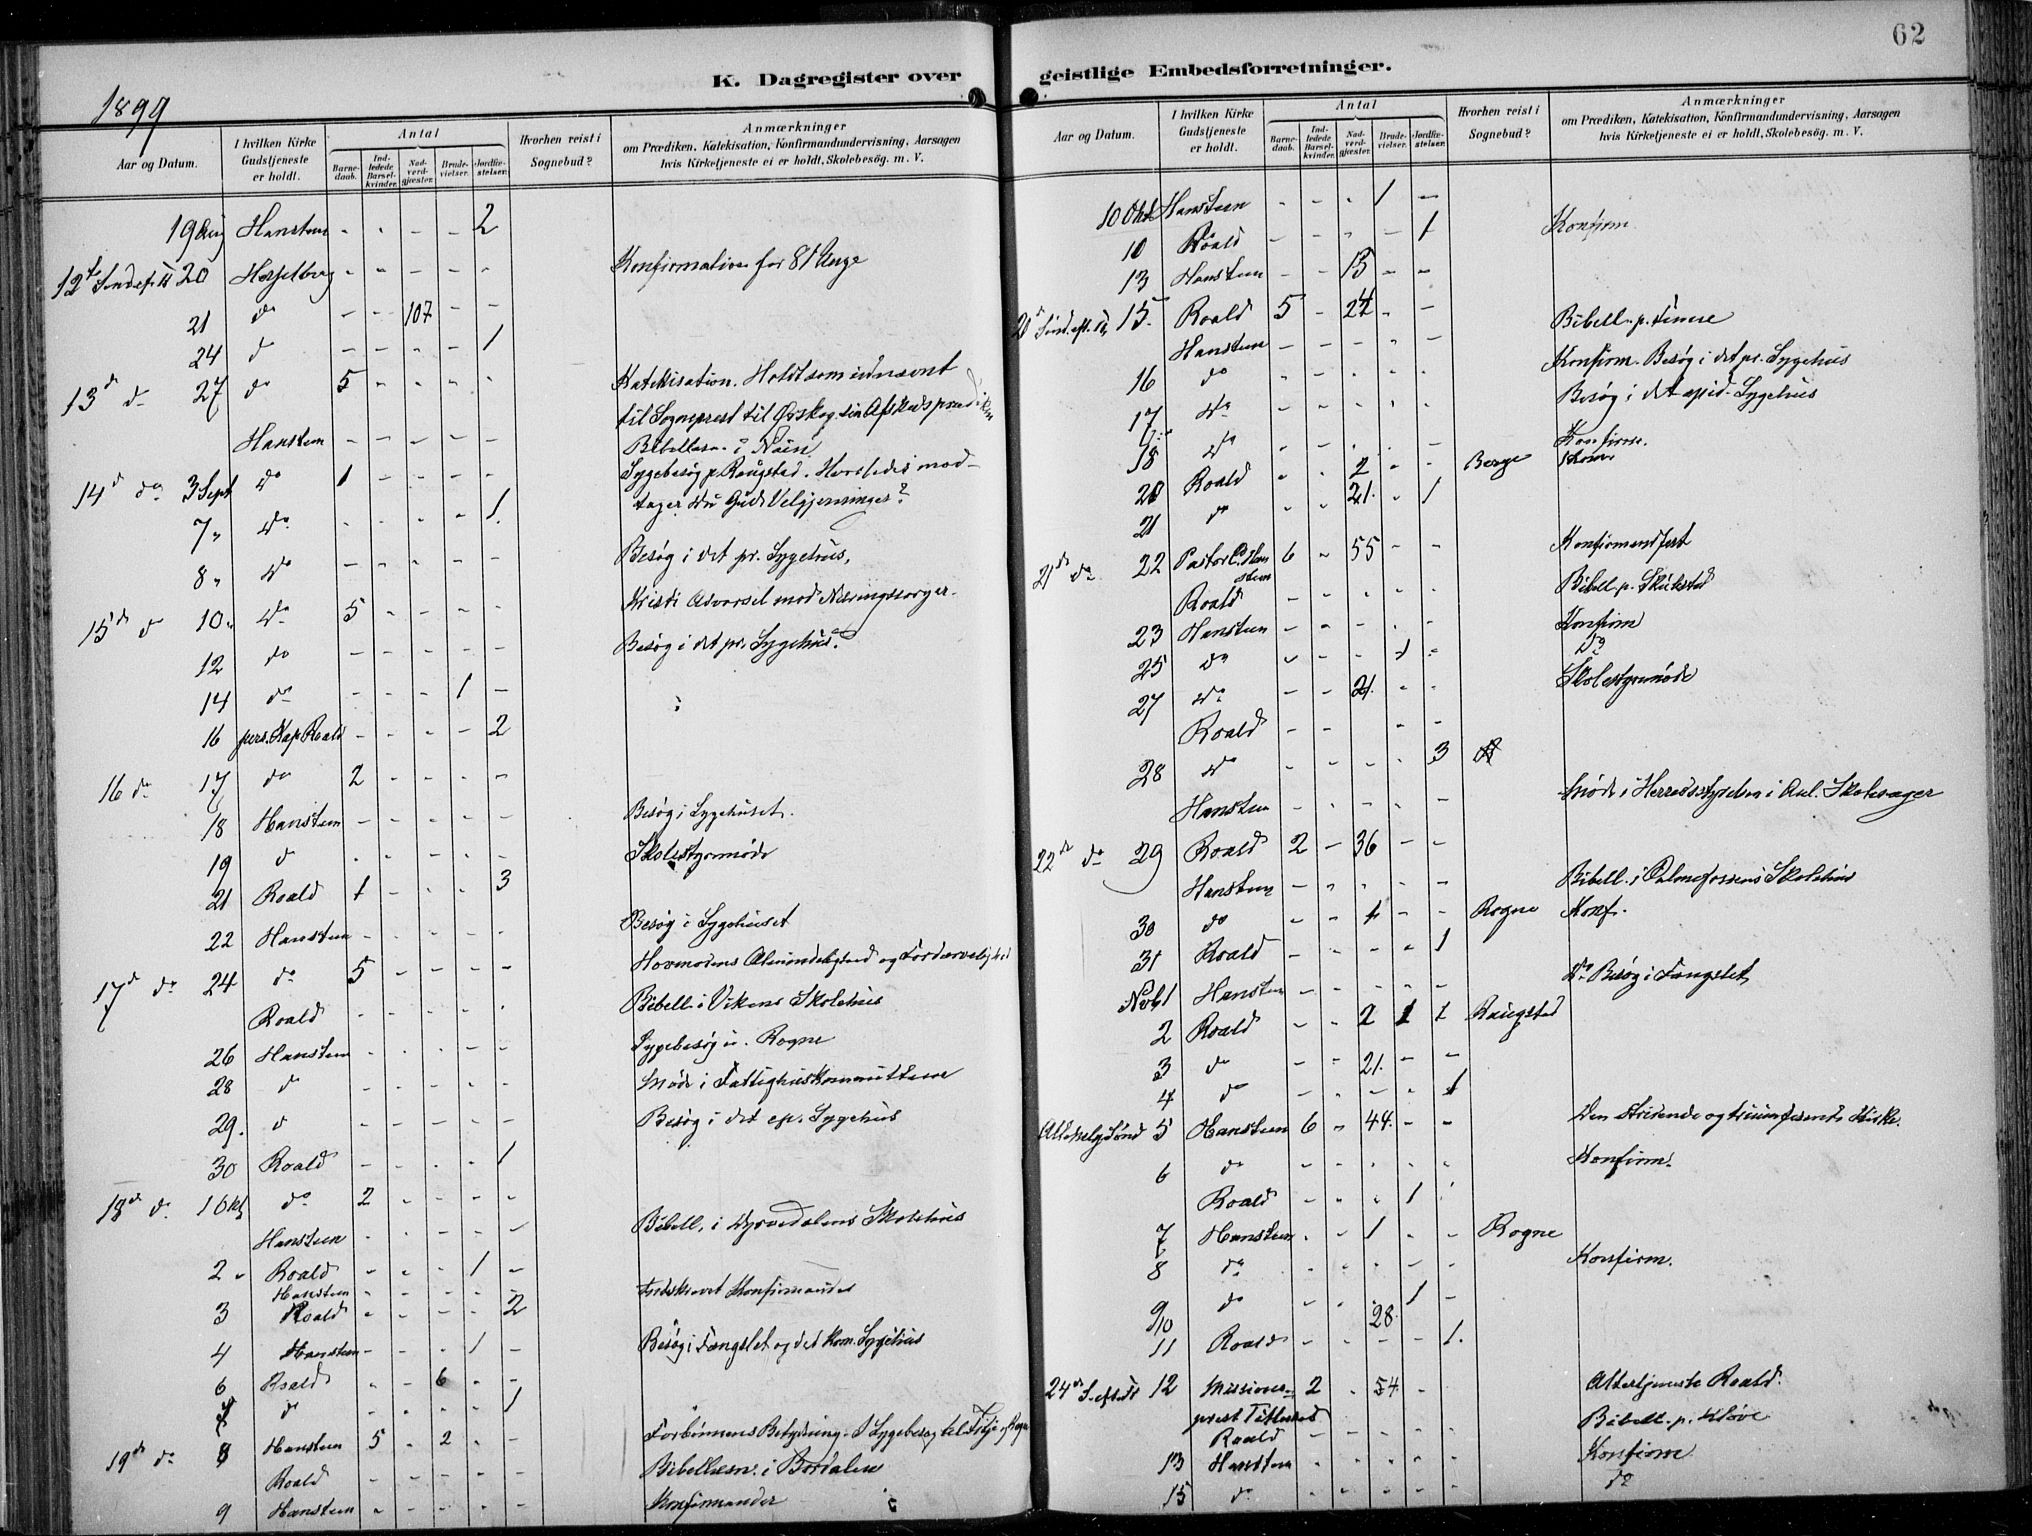 62
K. Dagregister over geistlige Embedsforretninger.
1899
Aar og Datum. I hvilken Kirke Gudstjeneste er holdt. Antal Barnedaab. Indledede Barselkvinder. Nadverdgjæster. Brudevielser. Jordfæstelser. Hvorhen reist i Sognebud? Anmærkninger om Prædiken, Katekisation, Konfirmandundervisning, Aarsagen hvis Kirketjeneste ei er holdt, Skolebesög. m. V.
19 Aug Hansteen - - - - 2
12te Sønd ef. Tr 20 Hesselberg - - - - - Konfirmation for 81 Unge
21 do - - 107 - -
24 do - - - - 1
13de do 27 do 5 - - - - Katekisation. Holdt som udnævnt
til Sogneprest til Ørskog sin Afskedsprædiken
Hansteen - - - - - Bibellæsn. i Næin
14de do 3 Sept do 1 - - - - Sygebesøg p. Raugstad. Hvorledes mod-
tager du Guds Velgjerninger?
7 " do - - - - 1.
8 " do - - - - - Besøg i det pr. Sygehus.
15de do 10 " do 5 - - - - Kristi Advarsel mod Næringssorger.
12 do - - - - - Besøg i det pr. Sygehus.
14 do - - - 1 -
16 pers. Kap Roald - - - - 2
16 do 17 do 2 - - - -
18 Hansteen - - - - - Besøg i Sygehuset.
19 do - - - - - Skolestyremøde
21 Roald 1 - - - 3
22 Hansteen - - - - - Besøg i Sygehuset
17de do 24 do 5 - - - - Hovmodens Almindelighed og Fordærvelighed
Roald - - - - - Bibell. i Vikens Skolehus
26 Hansteen - - - - - Sygebesøg i Rogne
28 do - - - - - Møde i Fattighuskommitteen
29. do - - - - - Besøg i det ep. Sygehus
30 Roald - - - - 1
18de do 1 Okt do 2 - - - -
Hansteen - - - - - Bibell. i Dyrvedalens Skolehus
2 " Roald - - - 1 -
Hansteen - - - - - Indskrevet Konfirmander
3 Roald - - - - 2
4 Hansteen - - - 1 - Besøg i Fængslet og det kom. Sygehus
6 Roald - - 6 - -
7 do - - - - 1
19de do 8 Hansteen 5 - 2 - - Forbønnens Betydning.
Roald - - - - - Bibellæsn. i Bordalen
9 Hansteen - - - - - Konfirmander
Aar og Datum. I hvilken Kirke Gudstjeneste er holdt. Antal Barnedaab. Indledede Barselkvinder. Nadverdgjæster. Brudevielser. Jordfæstelser. Hvorhen reist i Sognebud? Anmærkninger om Prædiken, Katekisation, Konfirmandundervisning, Aarsagen hvis Kirketjeneste ei er holdt, Skolebesög. m. V.
10 Okt Hansteen - - - 1 -
10 Roald - - - - 1 Konfirm
13 Hansteen - - 15 - -
15. Roald 5 - 22 - -
Hansteen - - - - - Bibell. p. Finne
16 do - - - - - Konfirm. Besøg i det pr. Sygehus
17 do - - - - - Besøg i det epid. Sygehus
18 do - - - - - Konfirm.
20 Roald - - 2 - - Berge
21 do - - 21. - 1
21de do 22 Pastor C. Hansteen 6 - 55 - - Konfirmandfest
Roald - - - - - Bibell. p. Skulestad
23 Hansteen - - - - - Konfirm
25 do - - - 1 - do
27 do - - 21. - - Skolestyremøde
Roald - - - -
28 do - - - - 3
Hansteen - - - - - Møde i Herredsstyrelsen i Anl. Skolesager
22de do 29 Roald 2 - 36 - -
Hansteen - - - - - Bibell. i Palmefossens Skolehus
30 do - - 1 - - Rogne Konf.
31 Roald - - - - 1
Nov 1 Hansteen - - - - - do Besøg i Fængslet
2 Roald - - 2 1 1 Raugstad
3 do - - 21. - -
4 do - - - - 1
Allehelgdønd 5 Hansteen 6 - 44. - - Den stridende og triumferende Kirke.
6 do - - - - - Konfirm.
Roald - - - 1 -
7 Hansteen - - 1 - - Rogne
8 do - - - - - Konfirm.
9 do - - - 1 -
10 28.
11 Roald - - - - 1.
24de S. eft Tr 12 Missions- 2 - 54 - - Altertjeneste Roald.
prest
Roald - - - - - Bibell. p. Kløve
13 Hansteen - - - - - Konfirm
15 do - - - - - do